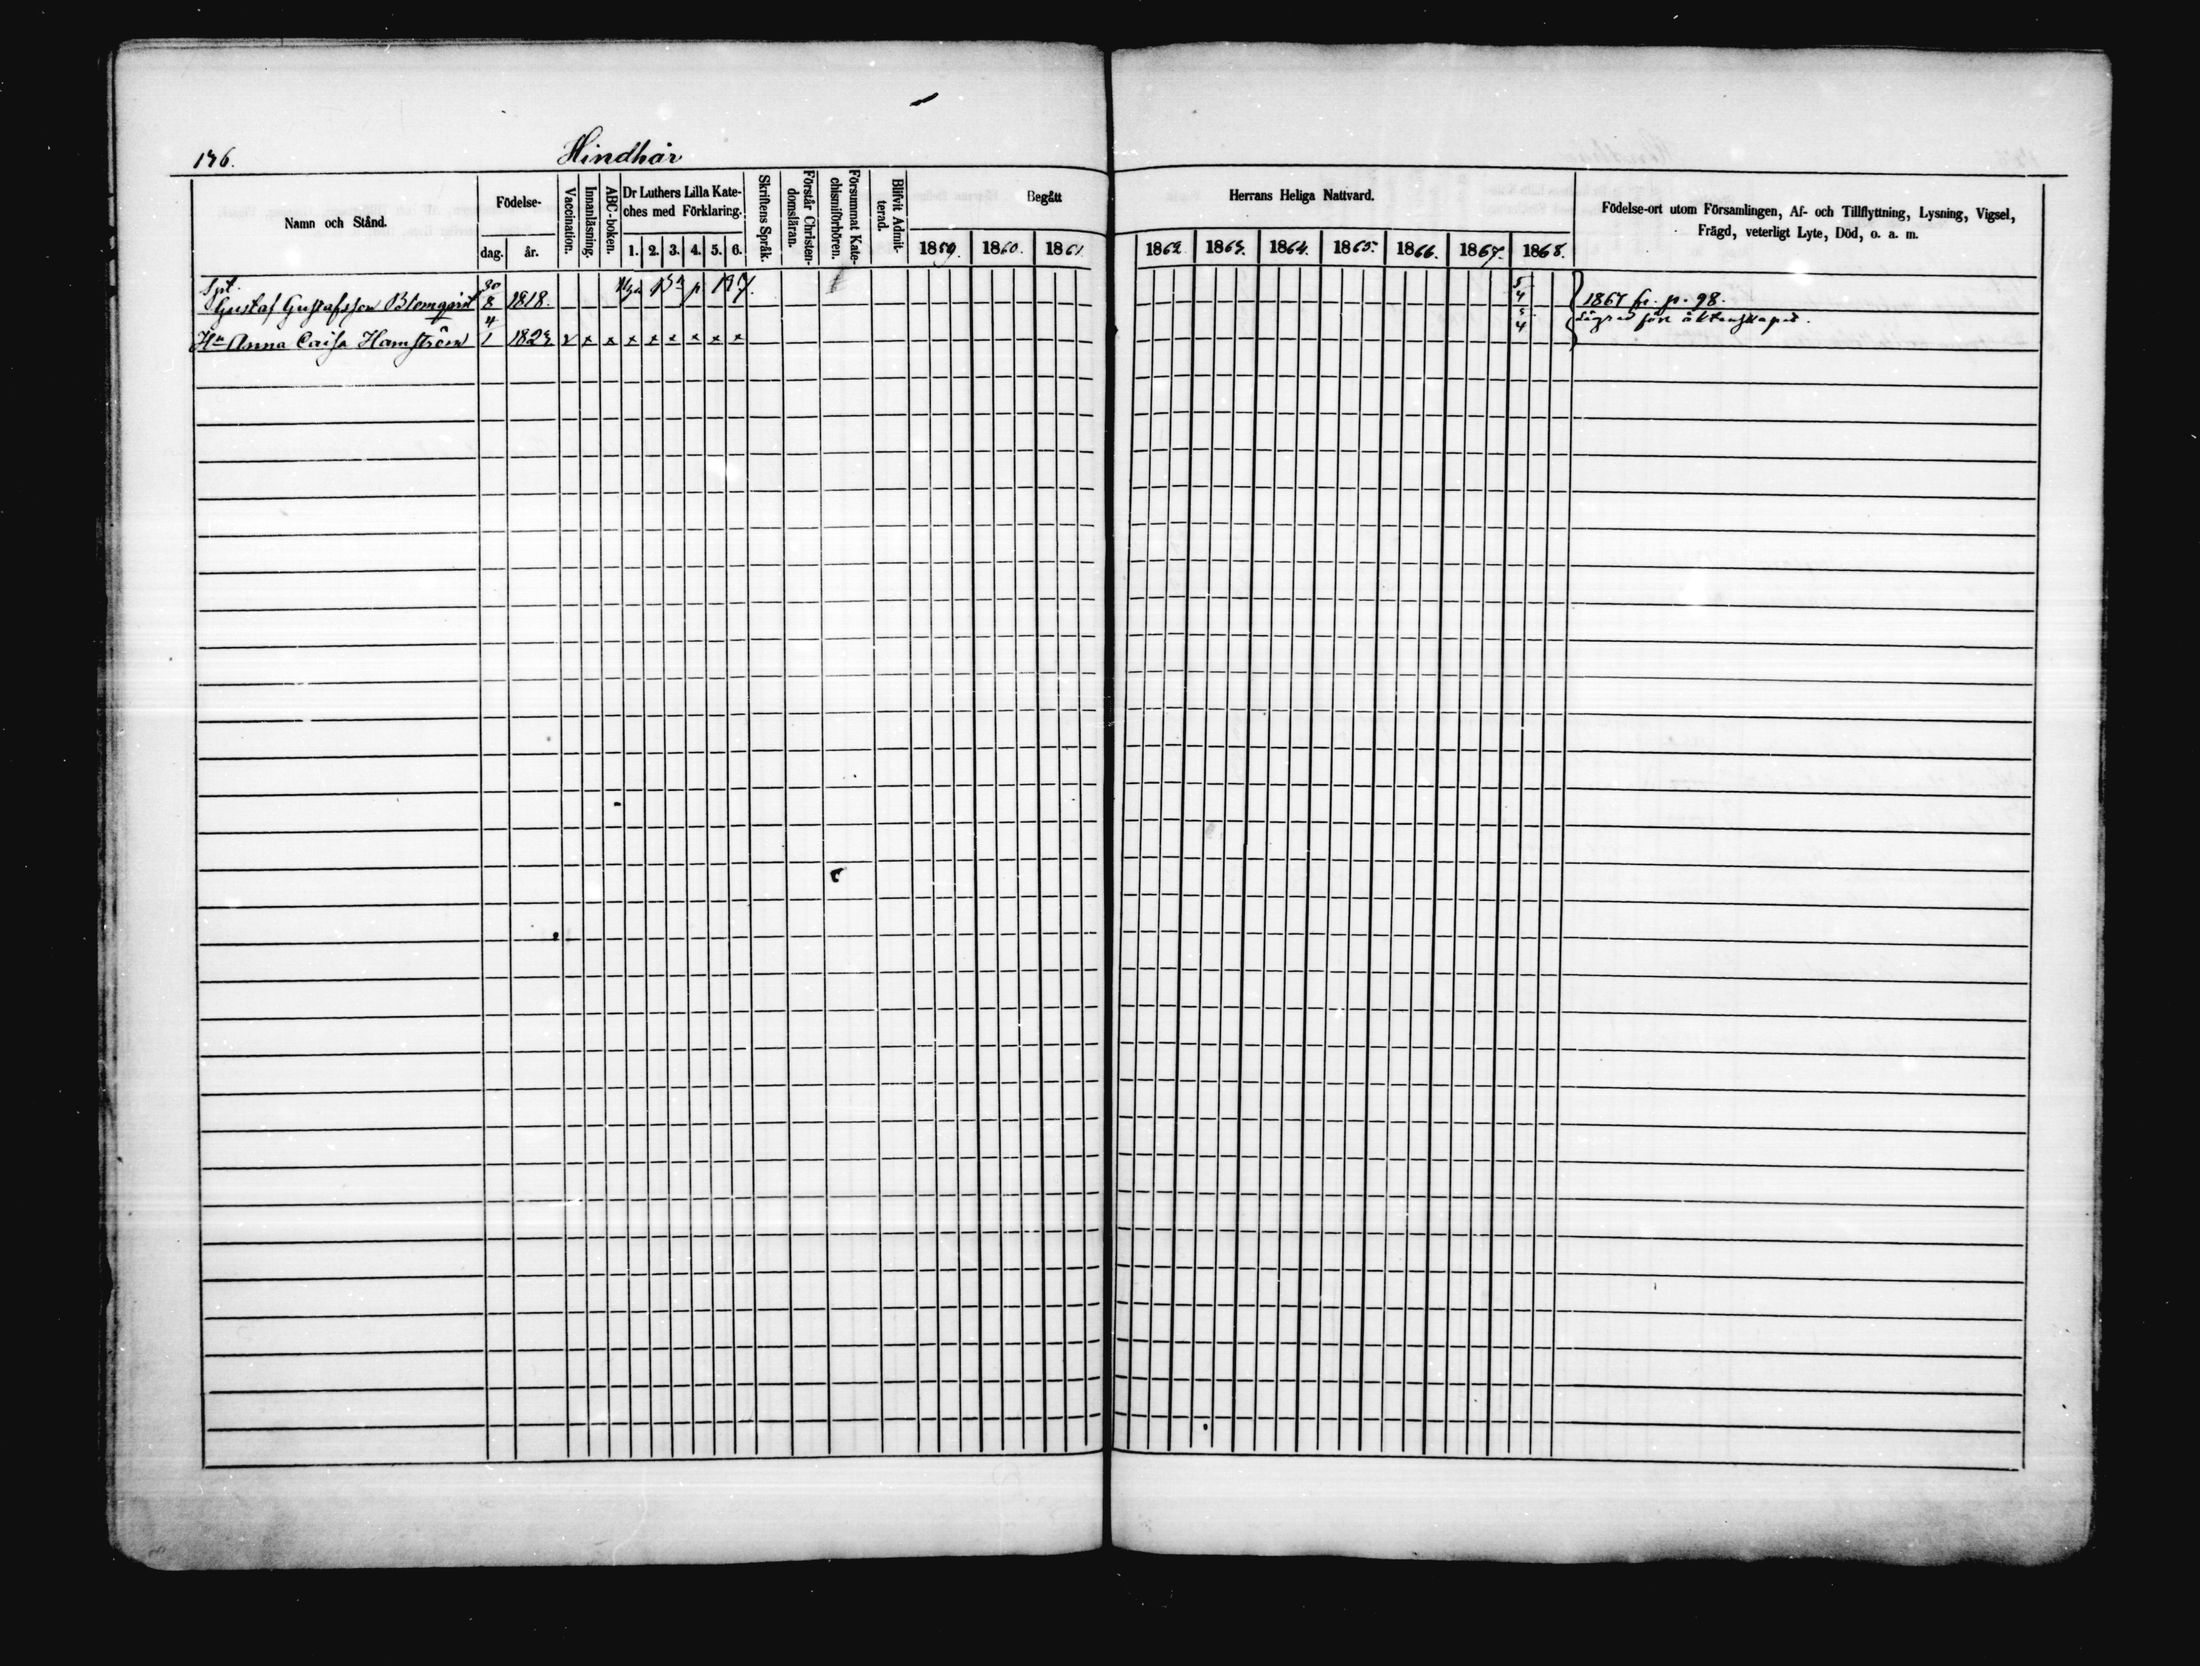 146.
Hindhår
Namn och Stånd.
Födelse-
dag.
år.
Vaccination.
Innanläsning.
ABC-boken.
Dr Luthers Lilla Kate-
ches med Förklaring.
1. 2. 3. 4. 5. 6.
Skriftens Språk.
Förstår Christen-
domsläran.
Försummat Kate-
chismiförhören.
Blifvit Admit-
terad.
Begått
1859. 1860. 1861
Herrans Heliga Nattvard.
1862. 1863. 1864. 1865. 1866. 1867. 1868.
Födelse-ort utom Församlingen, Af- och Tillflyttning, Lysning, Vigsel,
Frägd, veterligt Lyte, Död, o. a. m.
Gustaf Gustafsson Blomqvist 30/8 1818. p 137. 5/4 1867 fr. p. 98.
Hu Anna Caisa Hamström 4/1 1823 v x x x x x x x x 5/4 före äktenskapet.